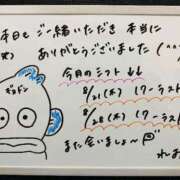 本日もご一緒いただき 本当に
ありがとうございました(^^
今月のシフト↓↓
8/21(木) 17-ラスト
8/28(木) 17-ラスト
また会いましょ〜